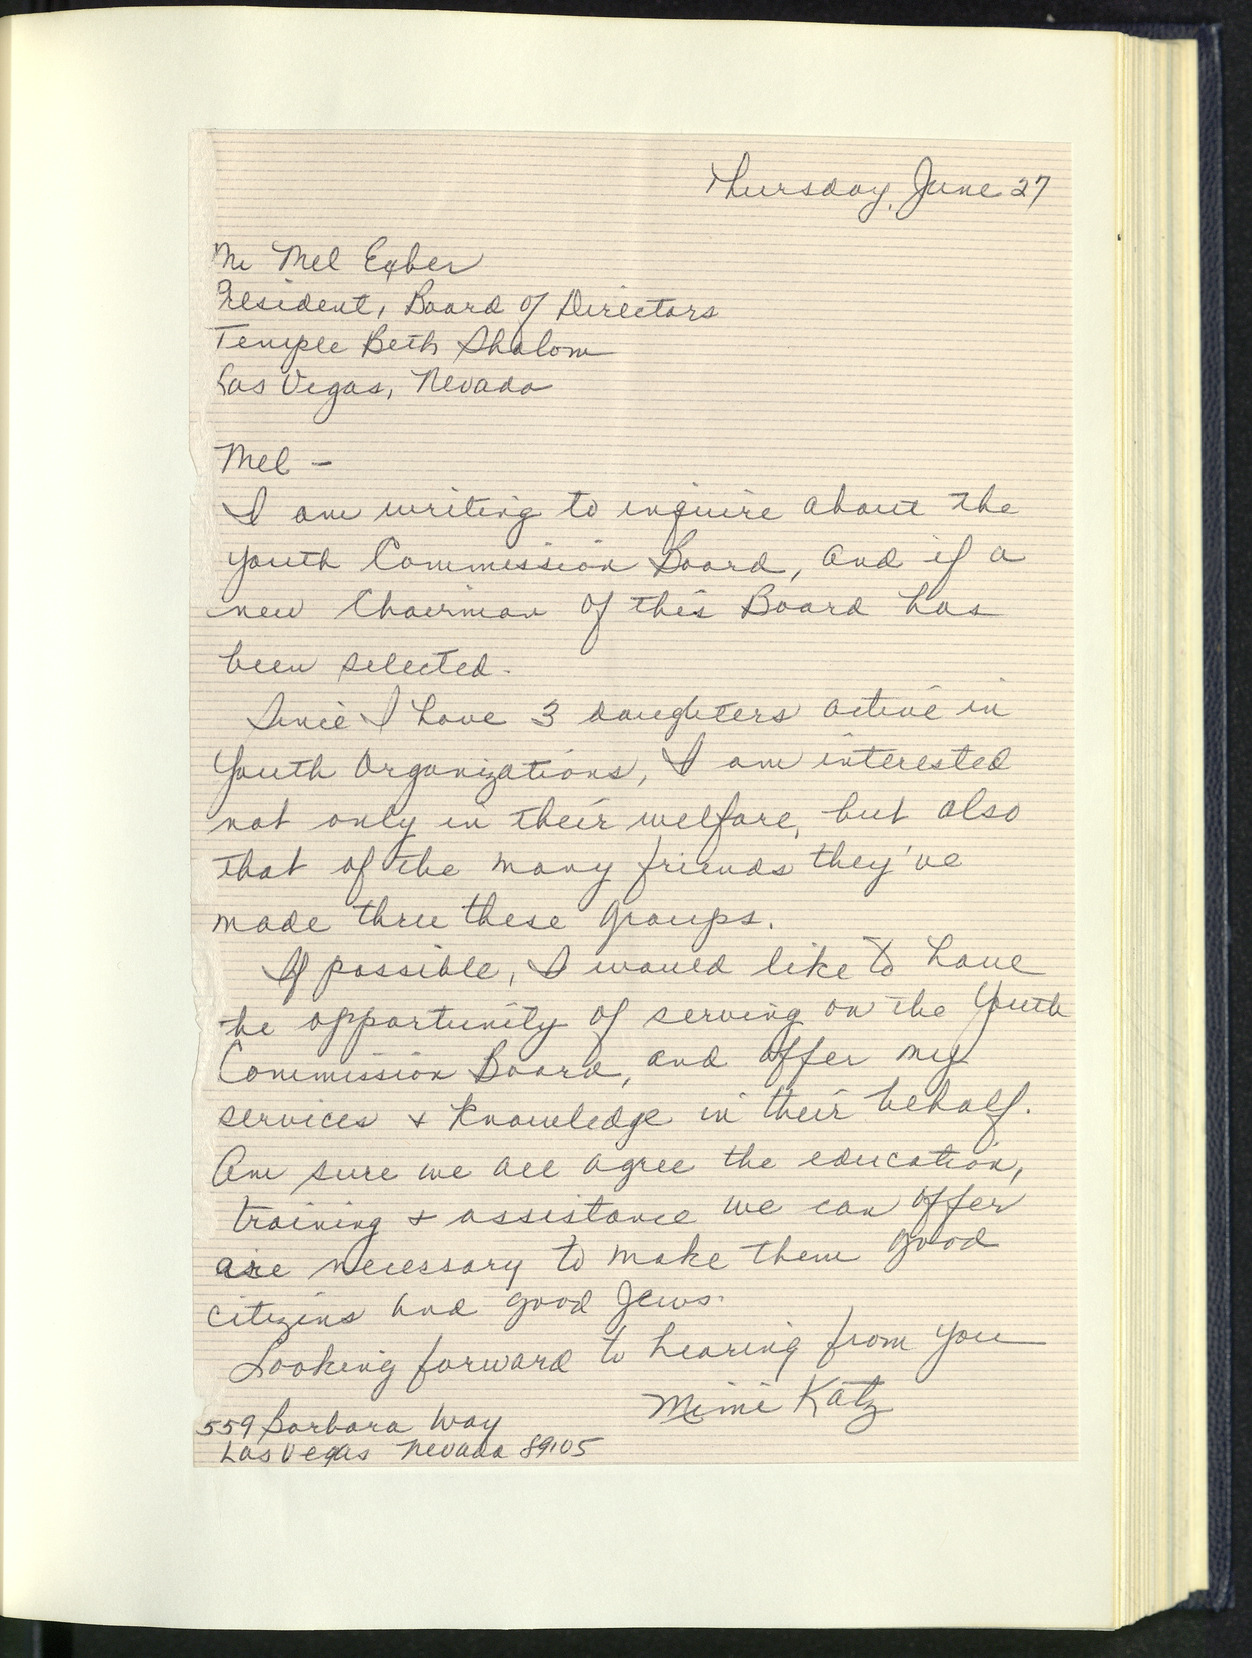 Thursday, June 27
Mr Mel Exber
President, Board of Directors
Temple Beth Shalom
Las Vegas, Nevada
Mel -
I am writing to inquire about the
Youth Commission Board, and if a
new Chairman of this Board has
been selected.
Since I have 3 daughters active in
Youth Organizations, I am interested
not only in their welfare, but also
that of the many friends they've
made thru these groups.
If possible, I would like to have
the opportunity of serving on the Youth
Commission Board, and offer my
services & knowledge in their behalf.
Am sure we all agree the education,
training & assistance we can offer
are necessary to make them good
citizens and good Jews.
Looking forward to hearing from you
Mimi Katz
559 Barbara Way
Las Vegas Nevada 89105